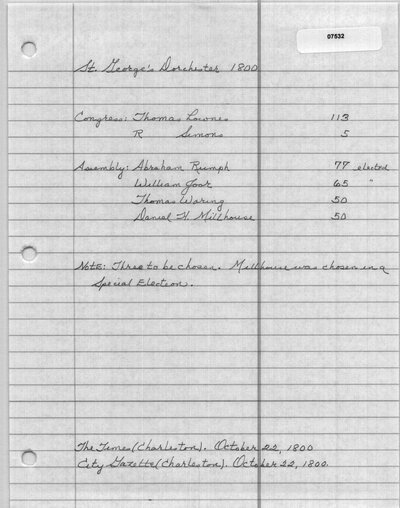 07532
St. George's Dorchester 1800
Congress: Thomas Lownes 113
R Simons 5
Assembly: Abraham Rumph 77 elected
William 65 "
Thomas Waring 50
Daniel H. Millhouse 50
Note: Three to be chosen. Millhouse was chosen in a
Special Election.
The Times (Charleston). October 22, 1800
City Gazette (Charleston). October 22, 1800.